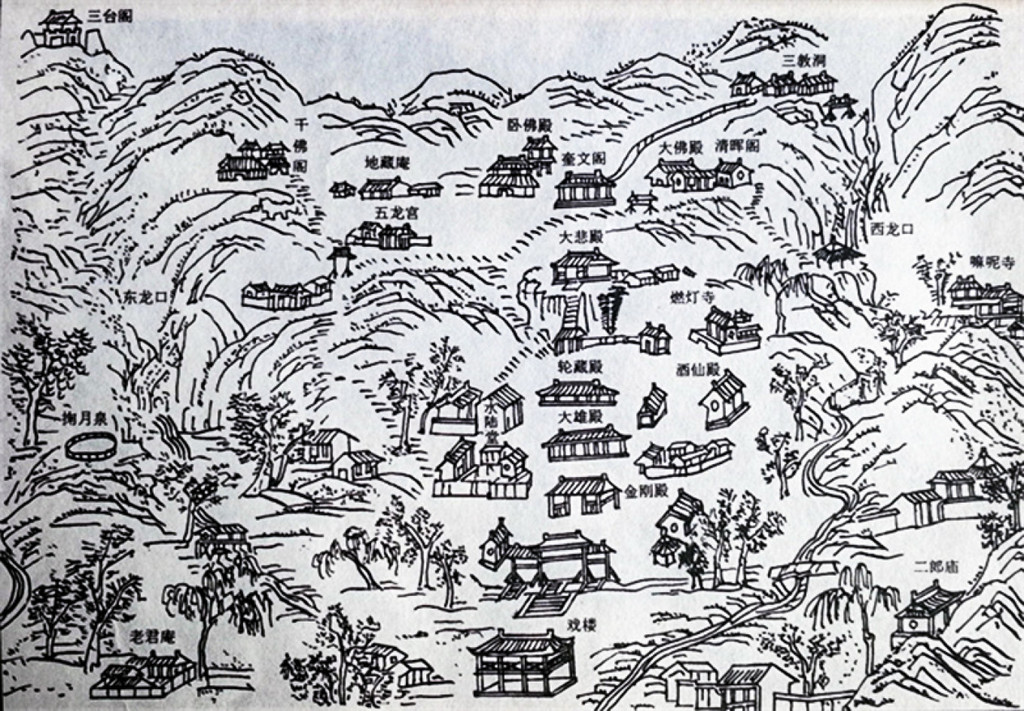 三台阁
三教洞
千佛阁
卧佛殿
地藏庵
奎文阁
大佛殿
清晖阁
五龙宫
西龙口
大悲殿
嘛呢寺
东龙口
燃灯寺
轮藏殿
酒仙殿
水陆堂
大雄殿
掬月泉
金刚殿
二郎庙
老君庵
戏楼